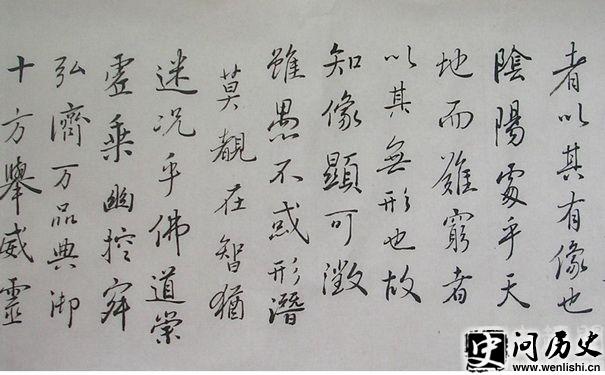 者以其有像也
陰陽處乎天
地而難窮者
以其無形也故
知像顯可徵
雖愚不惑形潛
莫覩在智猶
迷况乎佛道崇
虛乘幽控寂
弘濟万品典御
十方舉威靈
史 问历史
www.wenlishi.cn